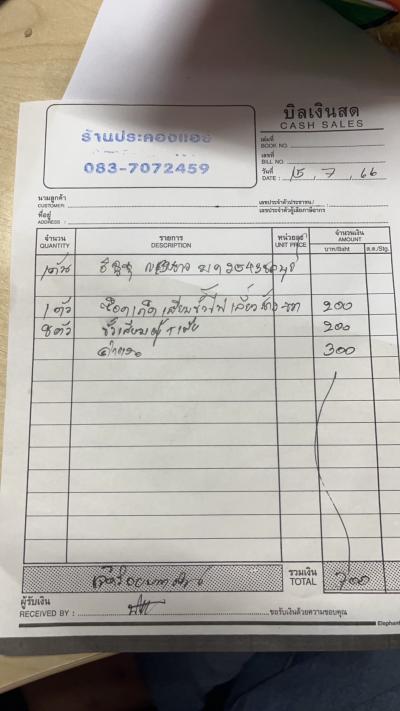 บิลเงินสด
CASH SALES
ร้านประคองแอร์
083-7072459
เล่มที่
BOOK NO.
เลขที่
BILL NO.
วันที่
DATE : 15 , 7 , 66
นามลูกค้า
CUSTOMER :
เลขประจำตัวประชาชน /
เลขประจำตัวผู้เสียภาษีอากร
ที่อยู่
ADDRESS :
จำนวน รายการ หน่วยละ จำนวนเงิน
QUANTITY DESCRIPTION UNIT PRICE AMOUNT
บาท/Baht ส.ต./Stg.
1 คัน อีซูซุ
1 ตัว 200
8 ตัว 200
ค่าแรง 300
เจ็ดร้อยบาทถ้วน รวมเงิน 700
TOTAL
ผู้รับเงิน
RECEIVED BY : ขอรับเงินด้วยความขอบคุณ